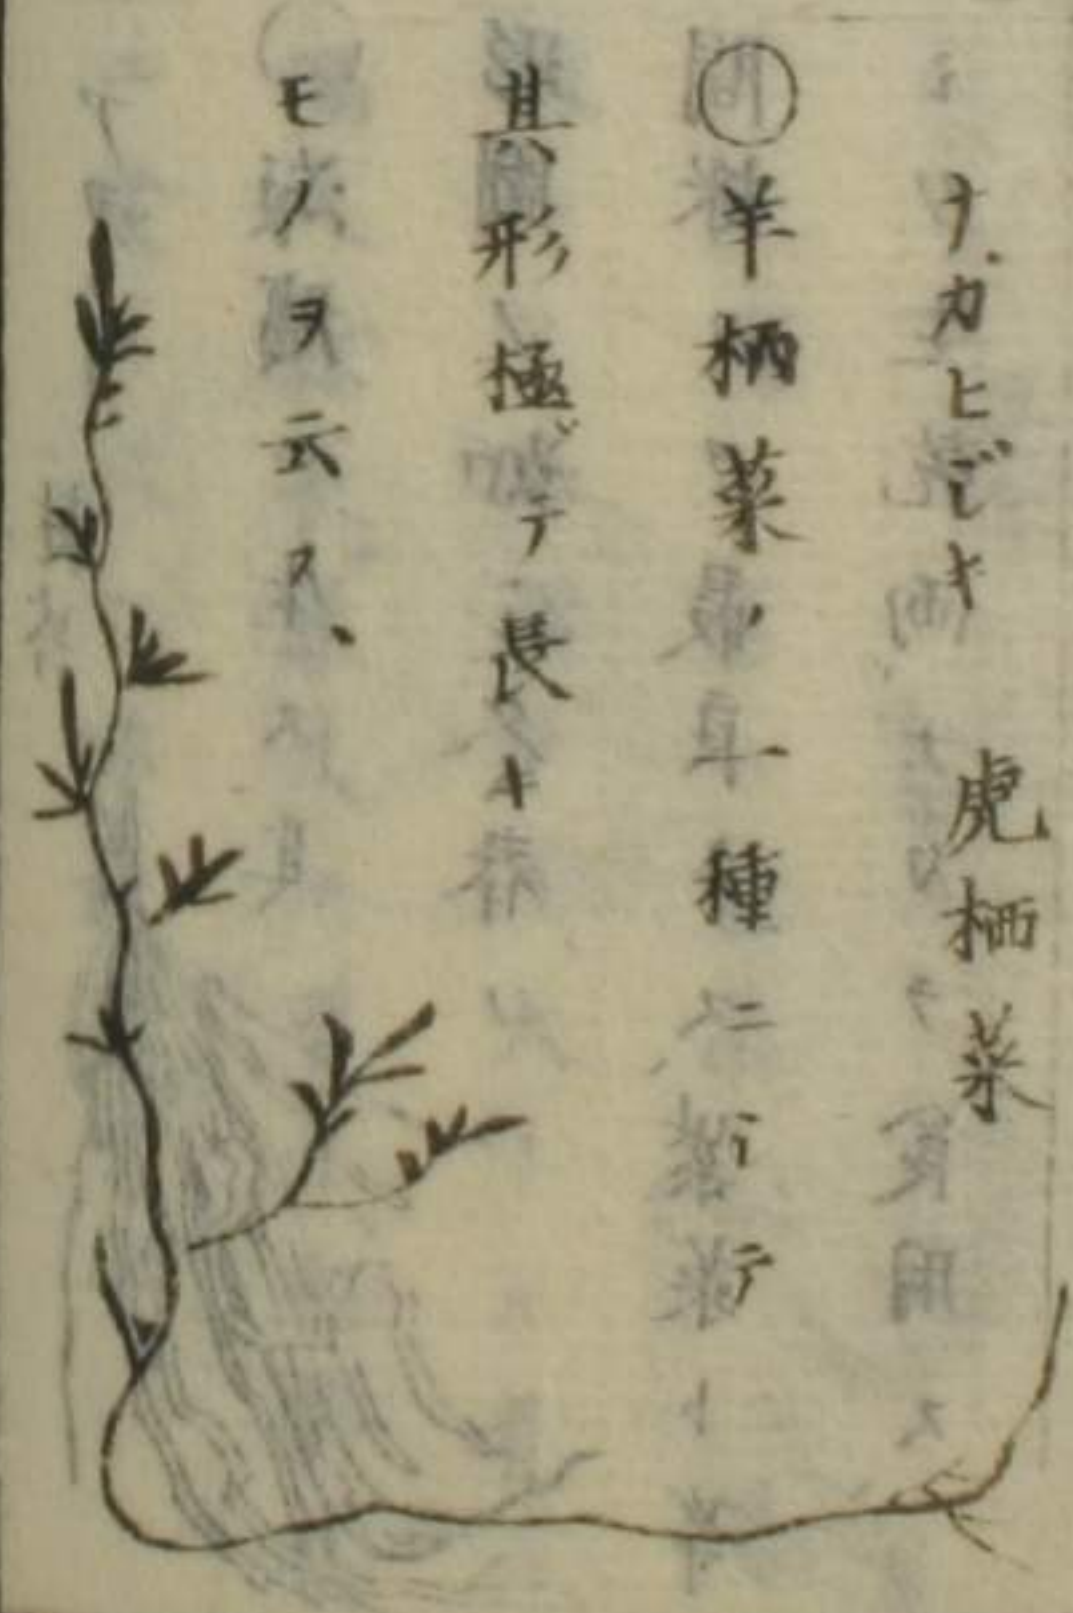 ナガヒジキ 虎栖菜
○羊栖菜ノ一種ニ〆テ
其形極〆テ長キ
モノヲ云フ、